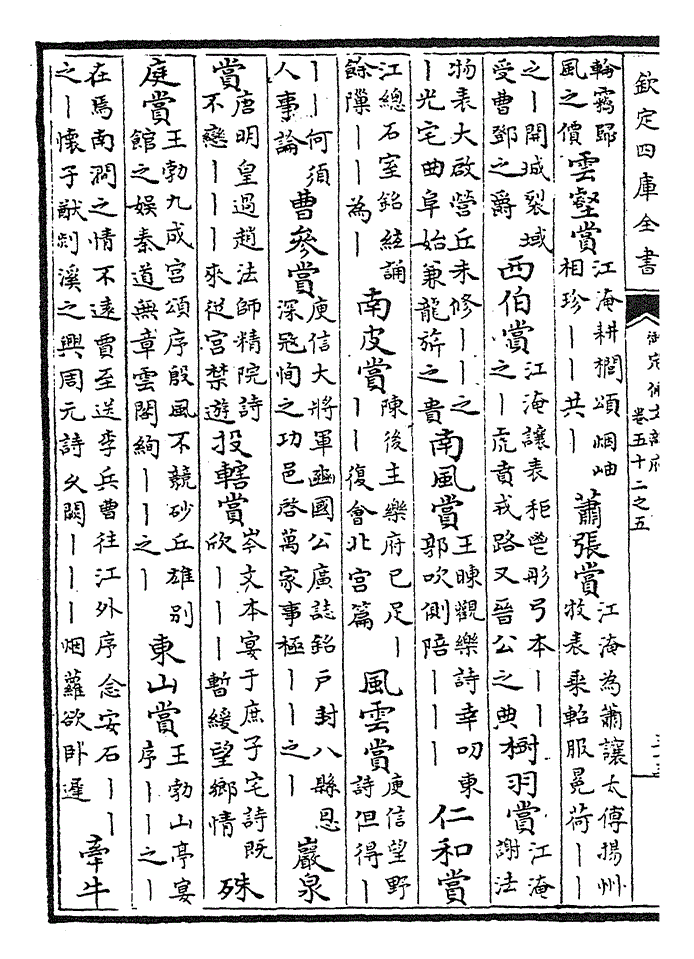 欽定四庫全書
御定佩文韻府
卷五十二之五
輪歸風之價雲壑賞江淹耕櫚頌烟岫相珍丨丨共丨蕭張賞江淹為蕭讓太傅揚州牧表乘軺服冕荷丨丨
之丨開城裂域受曹鄧之爵西伯賞江淹讓表秬鬯彤弓本丨丨之丨虎賁戎路又晉公之典樹羽賞江淹謝法
物表大啟營丘未修丨丨之丨光宅曲阜始兼龍旂之貴南風賞王暕觀樂詩幸叨東郭吹側陪丨丨丨仁和賞
江總石室銘絃誦餘隟丨丨為丨南皮賞陳後主樂府已足丨丨丨復會北宮篇風雲賞庾信望野詩但得丨
丨丨何須人事論曹參賞庾信大將軍豳國公廣誌銘戸封八縣恩深冠恂之功邑啓萬家事極丨丨之丨巖泉
賞唐明皇過趙法師精院詩不戀丨丨丨來從宮禁遊投轄賞岑文本宴于庶子宅詩既欣丨丨丨暫緩望鄉情殊
庭賞王勃九成宮頌序殷風不競砂丘雄別館之娛秦道無章雲閣絢丨丨之丨東山賞王勃山亭宴序丨丨之丨
在焉南澗之情不遠賈至送李兵曹往江外序念安石丨丨之丨懷子猷剡溪之興周元詩久闕丨丨丨烟蘿欲卧遲牽牛